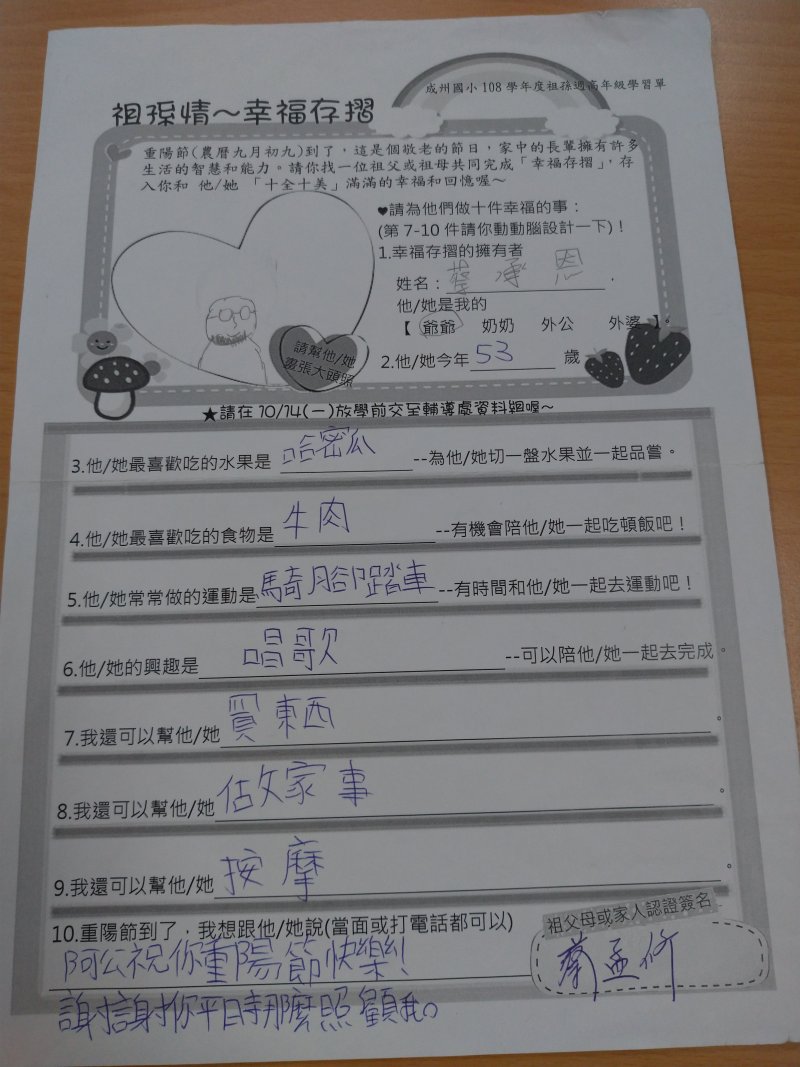 成州國小108學年度祖孫週高年級學習單
祖孫情～幸福存摺
重陽節(農曆九月初九)到了，這是個敬老的節日，家中的長輩擁有許多
生活的智慧和能力。請你找一位祖父或祖母共同完成「幸福存摺」，存
入你和 他/她 「十全十美」滿滿的幸福和回憶喔～
♥請為他們做十件幸福的事：
(第 7-10 件請你動動腦設計一下)！
1.幸福存摺的擁有者
姓名：蔡承恩.
他/她是我的
【 爺爺 奶奶 外公 外婆 】。
2.他/她今年53歲
請幫他/她
畫張大頭照
★請在 10/14(一)放學前交至輔導處資料組喔～
3.他/她最喜歡吃的水果是哈密瓜--為他/她切一盤水果並一起品嘗。
4.他/她最喜歡吃的食物是牛肉--有機會陪他/她一起吃頓飯吧！
5.他/她常常做的運動是騎腳踏車--有時間和他/她一起去運動吧！
6.他/她的興趣是唱歌--可以陪他/她一起去完成。
7.我還可以幫他/她買東西。
8.我還可以幫他/她做家事。
9.我還可以幫他/她按摩。
10.重陽節到了，我想跟他/她說(當面或打電話都可以)
阿公祝你重陽節快樂!
謝謝你平時那麼照顧我。
祖父母或家人認證簽名
蔡孟